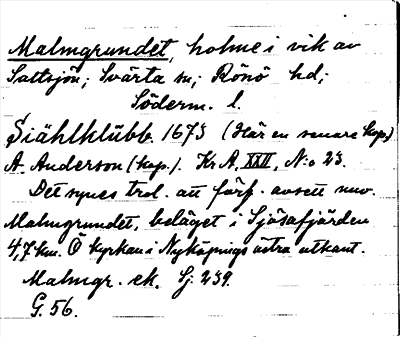 Malmgrundet, holme i vik av
Saltsjön; Svärta sn; Rönö hd;
Söderm. l.
Siählklübb. 1673 (Här en senare kop.)
A. Anderson (kop.). Kr A, XXII, N:o 23.
Det synes trol. att förf. avsett nuv.
Malmgrundet, beläget i Sjösafjärden
4,7 km. Ö kyrkan i Nyköpings östra utkant.
Malmgr. ek. Sj. 239.
G. 56.